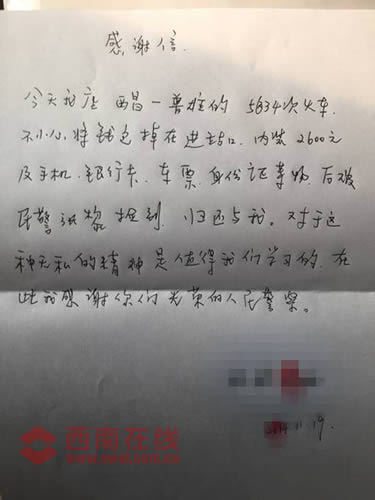 感谢信
今天我座 西昌－普雄的 5634次火车.
不小心将钱包掉在进站口. 内装 2600元
及手机. 银行卡. 车票. 身份证等物. 后被
民警 捡到. 归还与我. 对于这
种无私的精神是值得我们学习的. 在
此我感谢你们光荣的人民警察。
11.19.
西南在线